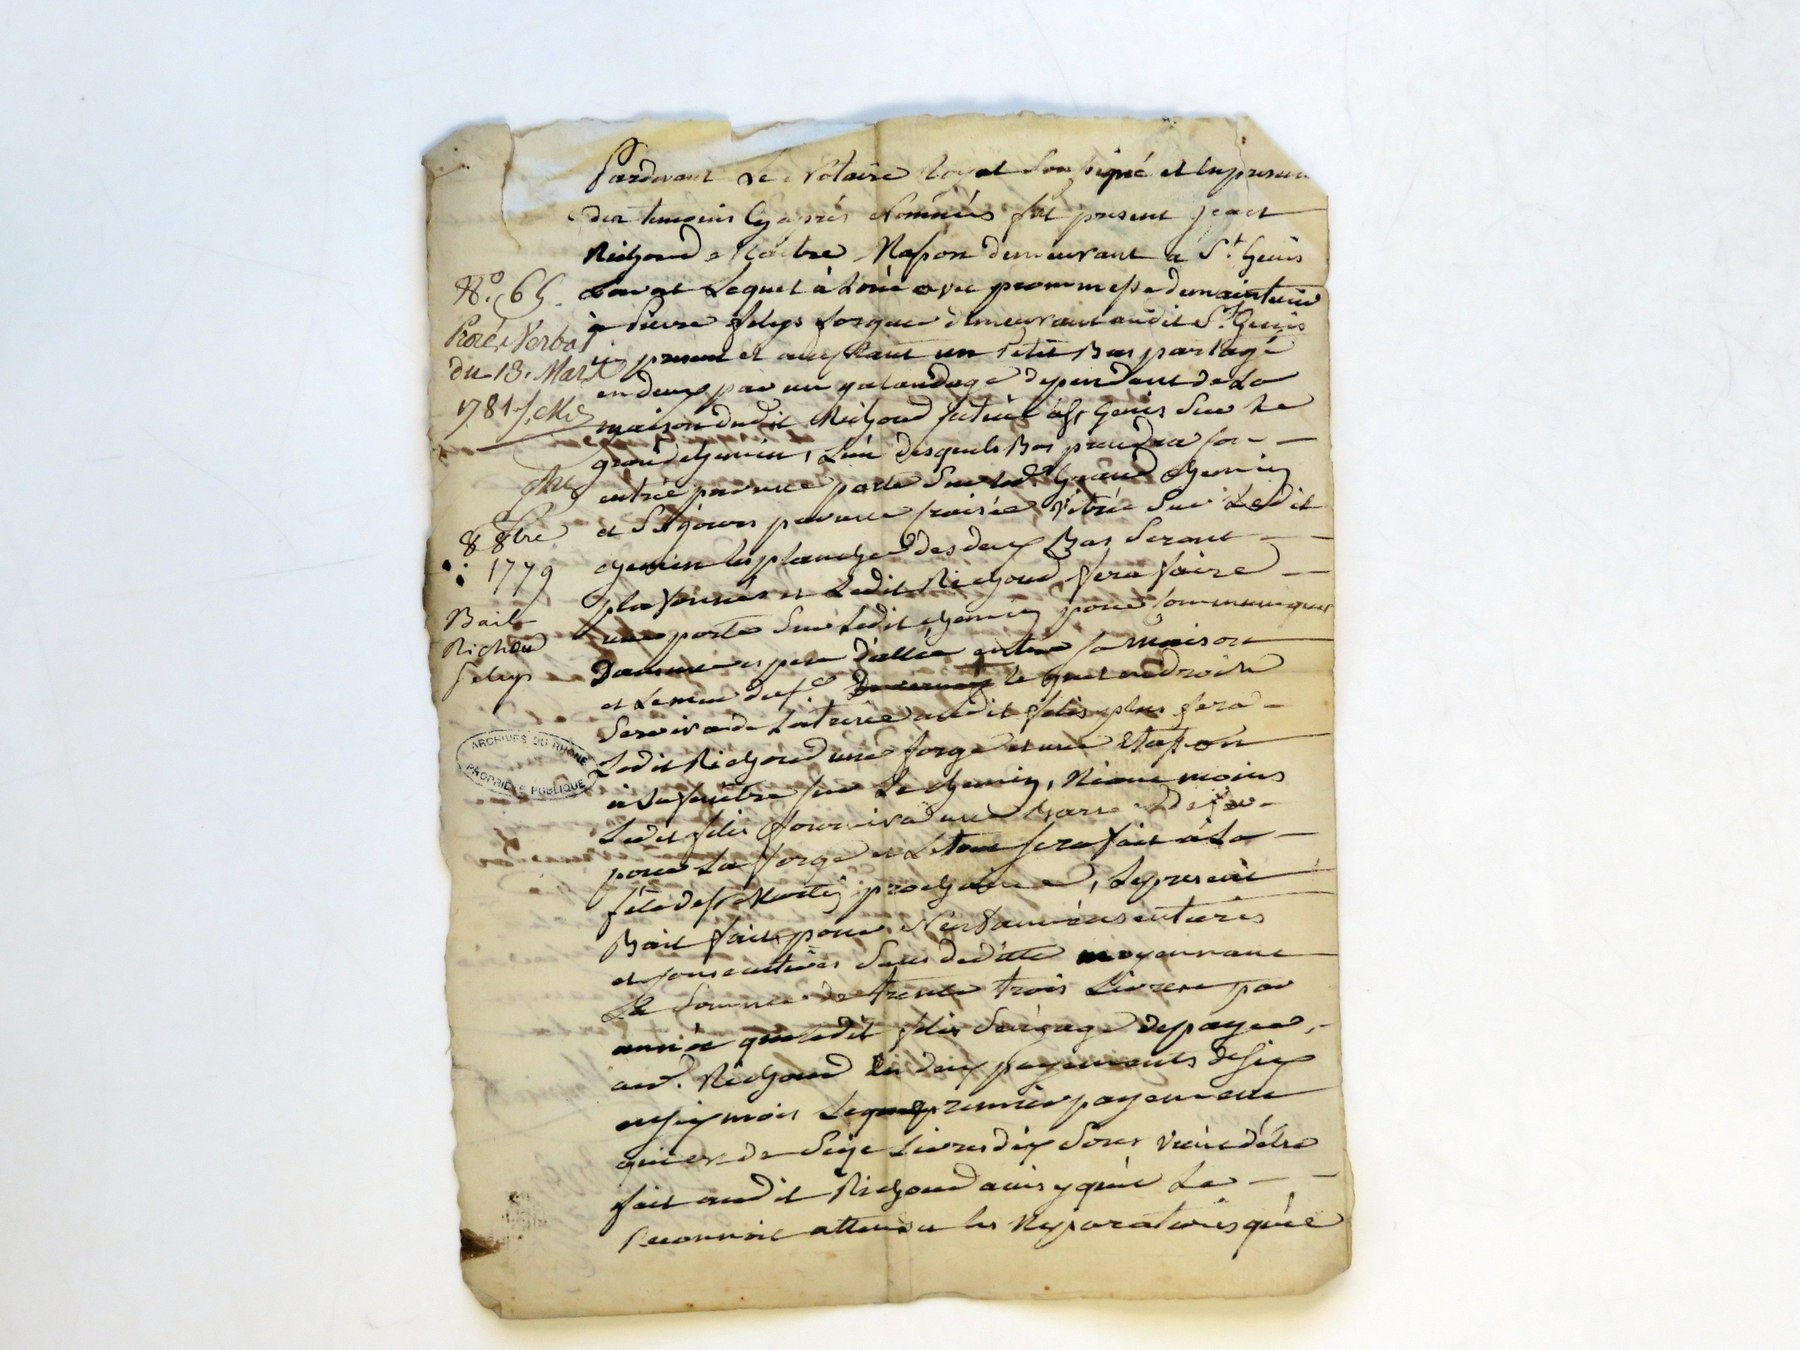 Pardevant Le Notaire Royal Soussigné et En presence
des temoins Cy après Nommés fut present Jean
Richoud Maitre Masson demeurant a St. Genis
Laval Lequel à Loüé avec promesse de maintenir
à Pierre felys forgeur demeurant audit St. Genis
Icy present et acceptant un Petit Bas partagé
en deux par un galandage dependant de La
maison dudit Richoud situeé à St Genis Sur Le
grand chemin, L'un desquels Bas prendra son
entreé par une porte Sur led. Grand chemin
et Ses jours par une croiseé Vitreé Sur Ledit
chemin les planchers des deux Bas Seront
plafonnés et Ledit Richoud fera faire
une porte Sur Ledit chemin pour Communiquer
Dans une espece d'alleé entre sa maison
et Le mur du Sr. le quel endroit
Servira de latrine audit felis plus fera
Ledit Richoud une forge et une
à La fenêtre sur Le chemin, Neanmoins
Ledit felis fournira une Barre De fer
pour La forge et Le tout sera fait à La
fête de St Martin prochaine, Le present
Bail fait pour Neuf anneés entieres
et consecutives Sans deditte moyennant
La Somme de trente trois Livres par
anneé que ledit felis S'engage de payer
aud. Richoud En deux payements de six
en six mois Le premier payement
qui est de Seize Livres dix Sous vient d'être
fait audit Richoud ainsy qu'il Le
reconnoit attendu les Reparations qu'il
No. 65.
Procés Verbal
du 13. Mars
1781
8 8bre
1779
Bail
Richoud
felys
ARCHIVES DU RHÔNE
PROPRIÉTÉ PUBLIQUE